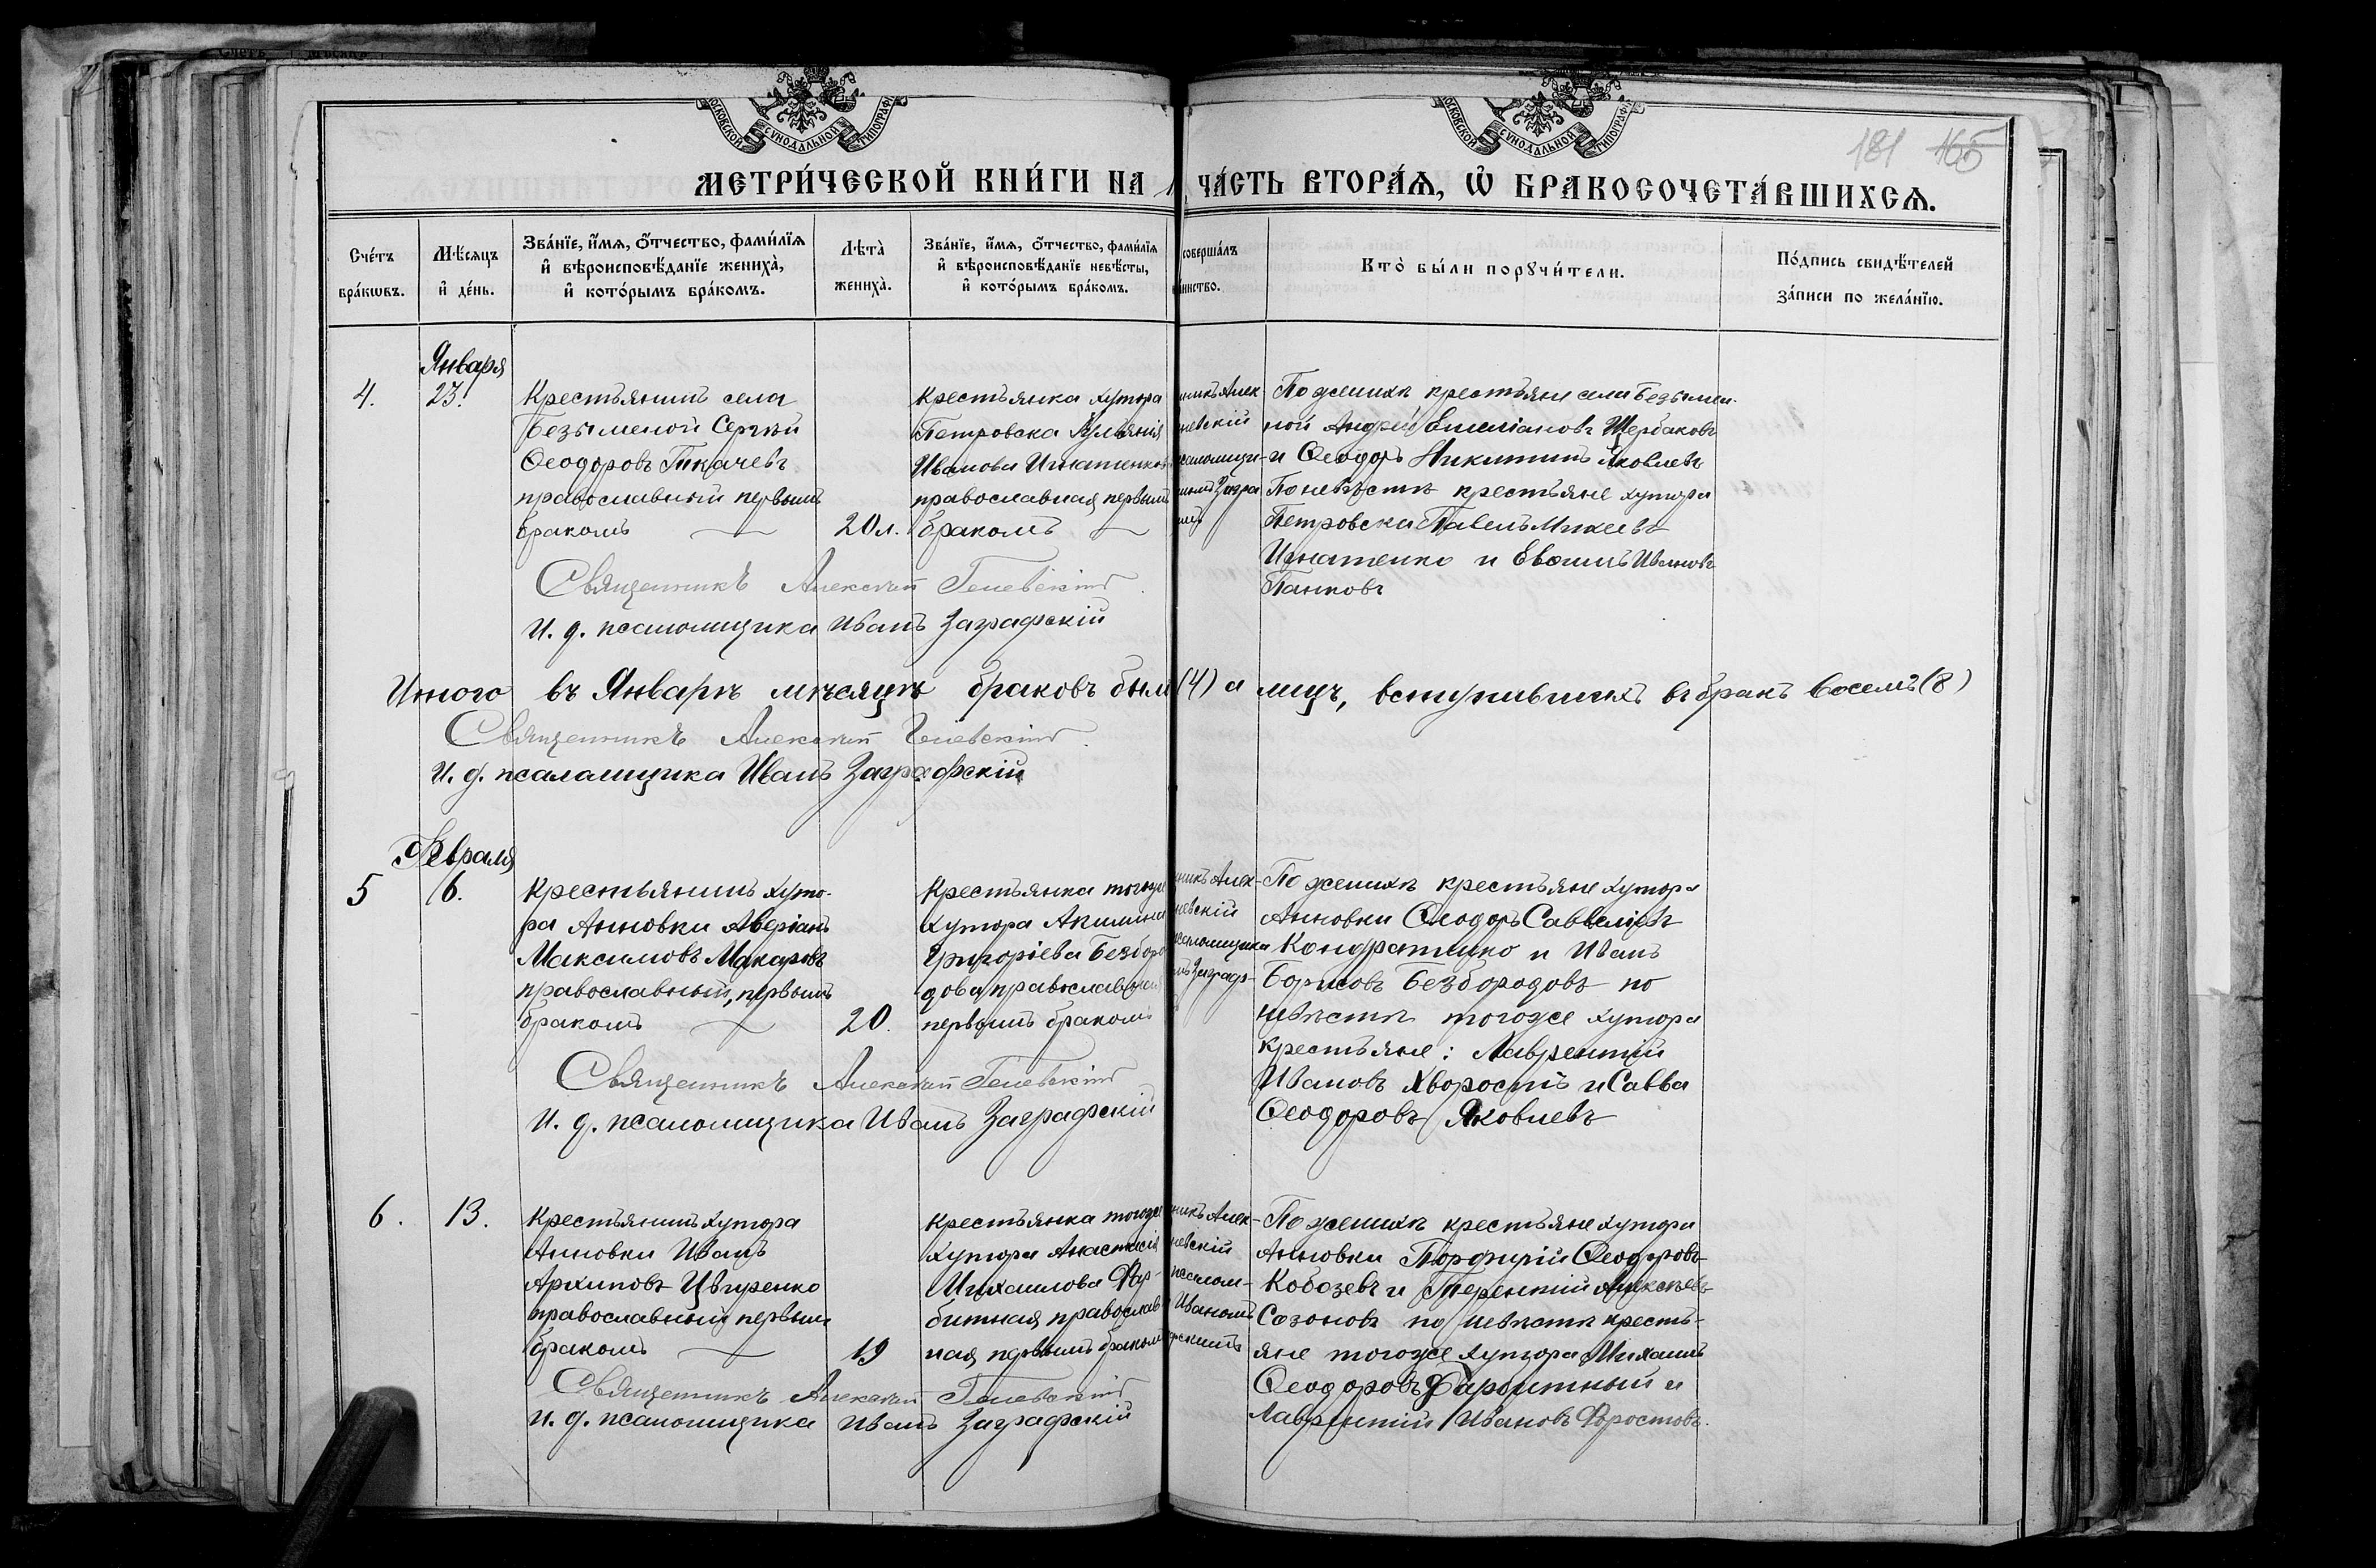 МОСКОВСКОЙ СУНОДАЛЬНОЙ ТИПОГРАФІ
СУНОДАЛЬНОЙ ТИПОГРАФІ
181 165
МЕТРИ́ЧЕСКОЙ КНИ́ГИ НА
ЧА́СТЬ ВТОРА́Ѧ, Ѿ БРАКОСОЧЕТА́ВШИХСѦ.
Сче́тъ бра́кѡвъ.
Мѣ́сѧцъ и҆ де́нь.
Зва́нїе, и҆́мѧ, ѻ҆́тчество, фами́лїѧ
и҆ вѣроисповѣ́данїе жениха̀,
и҆ кото́рымъ бра́комъ.
Лѣта̀
жениха̀.
Зва́нїе, и҆́мѧ, ѻ҆́тчество, фами́лїѧ
и҆ вѣроисповѣ́данїе невѣ́сты,
и҆ кото́рымъ бра́комъ.
соверша́лъ
инство.
Кто̀ бы́ли порꙋчи́тели.
По́дпись свидѣ́телей
за́писи по жела́нїю.
Января
4. 23.
Крестьянинъ села
Безыменой Сергѣй
Ѳеодоровъ Ткачевъ
православный первымъ
бракомъ
20 л.
Крестьянка хутора
Петровска Іуліанія
Иванова Игнатенков
православная первымъ
бракомъ
никъ Алек-
невскій
псаломщи-
Загра
По женихѣ крестьяне села Безымен-
ной Андрей Емиліановъ Щербаковъ
и Ѳеодоръ Никитинъ Яковлевъ
По невѣстѣ крестьяне хутора
Петровска Павелъ Михеевъ
Игнатенко и Евѳимъ Ивановъ
Панковъ
Священникъ Алексѣй
И. д. псаломщика Иванъ Заграфскій
Итого въ Январѣ мѣсяцѣ браковъ был (4) а лицъ, вступившихъ въ бракъ восемь (8)
Священникъ Алексѣй
И. д. псаломщика Иванъ Заграфскій
Февраля
5 6.
Крестьянинъ хуто-
ра Анновки Аверіанъ
Максимовъ Макаровъ
православный, первымъ
бракомъ
20.
Крестьянка тогоже
хутора Акилина
Григоріева Безборо
дова православная
первымъ бракомъ
никъ Алек-
невскій
псаломщика
Заграф-
По женихѣ крестьяне хутора
Анновки Ѳеодоръ Савеліевъ
Кондратенко и Иванъ
Борисовъ Безбородовъ по
невѣстѣ тогоже хутора
крестьяне: Лаврентій
Ивановъ Хворостъ и Савва
Ѳеодоровъ Яковлевъ
Священникъ Алексѣй
И. д. псаломщика Иванъ Заграфскій
6. 13.
Крестьянинъ хутора
Анновки Иванъ
Архиповъ Цвиренко
православный первымъ
бракомъ
19
Крестьянка тогоже
хутора Анастасія
Михаилова Фар-
битная православ
ная первымъ бракомъ
никъ Алек-
невскій
псалом-
Иваномъ
фскимъ
По женихѣ крестьяне хутора
Анновки Порфирій Ѳеодоровъ
Кобозевъ и Терентій Алексѣевъ
Созоновъ по невѣстѣ кресть-
яне тогоже хутора Михаилъ
Ѳеодоровъ Фарбитный и
Лаврентій Ивановъ Форостовъ.
Священникъ Алексѣй
И. д. псаломщика Иванъ Заграфскій